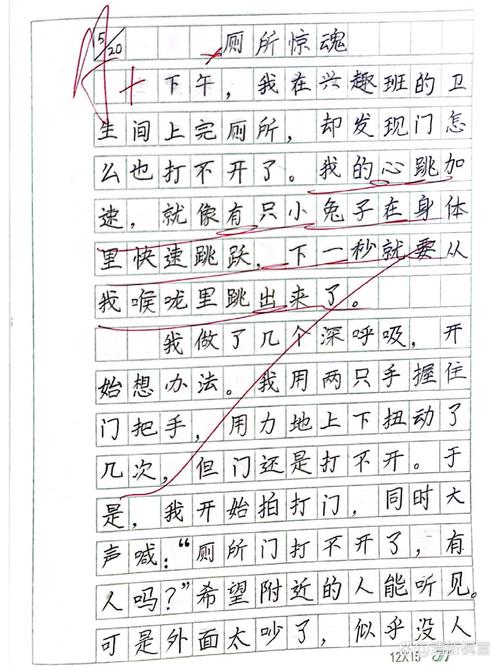 5/20
A+
厕所惊魂
下午，我在兴趣班的卫
生间上完厕所，却发现门怎
么也打不开了。我的心跳加
速，就像有只小兔子在身体
里快速跳跃，下一秒就要从
我喉咙里跳出来了。
我做了几个深呼吸，开
始想办法。我用两只手握住
门把手，用力地上下扭动了
几次，但门还是打不开。于
是，我开始拍打门，同时大
声喊：“厕所门打不开了，有
人吗？”希望附近的人能听见。
可是外面太吵了，似乎没人
12X15